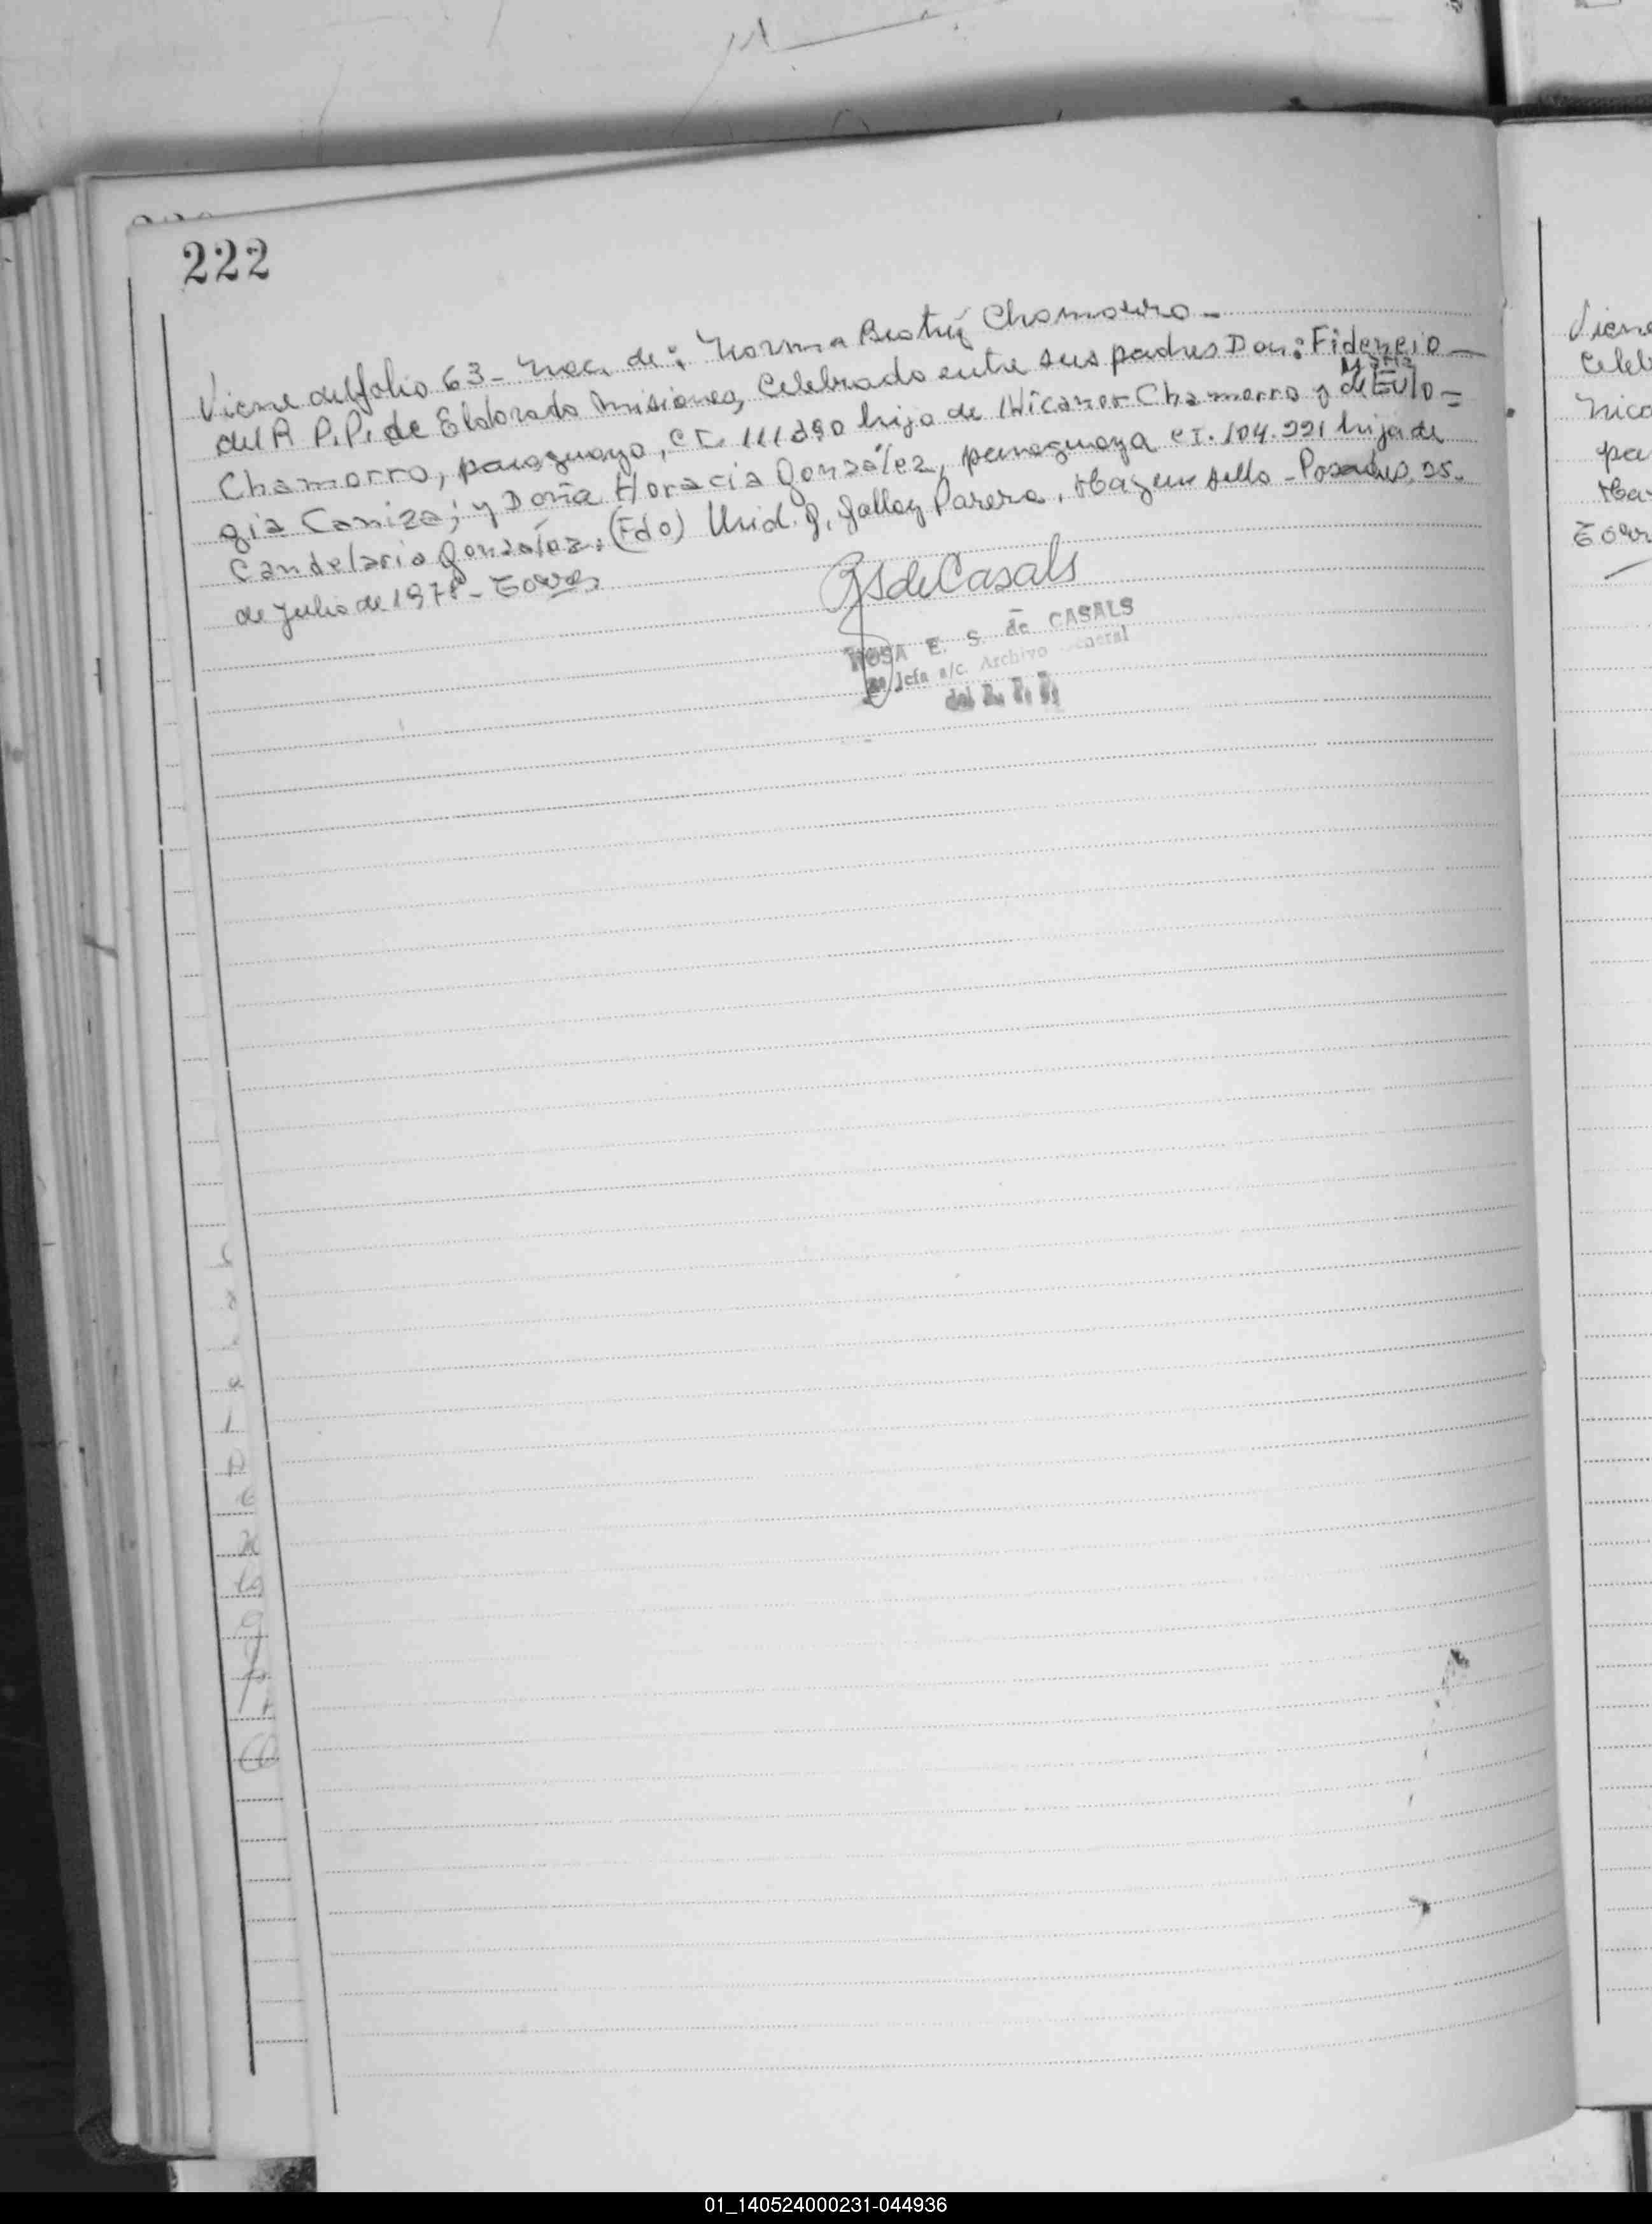 222
Viene del folio 63 - Nac. de: Norma Beatríz Chamorro -
del R. P. P. de Eldorado Misiones, Celebrado entre sus padres Don: Fidencio -
Chamorro, paraguayo, C I. 111390 hijo de Nicanor Chamorro y de Eulo=
gia Caniza; y Doña Horacia González, paraguaya C I. 104.221 hija de
Candelaria González. (Fdo) Parera, Hay un sello - Posadas, 25.
de Julio de 1978 - Torres
RSdeCasals
ROSA E. S. de CASALS
Jefa a/c. Archivo General
del R. P. P.
Viene
Celeb
Nica
pa
Hay
Torr
01_140524000231-044936